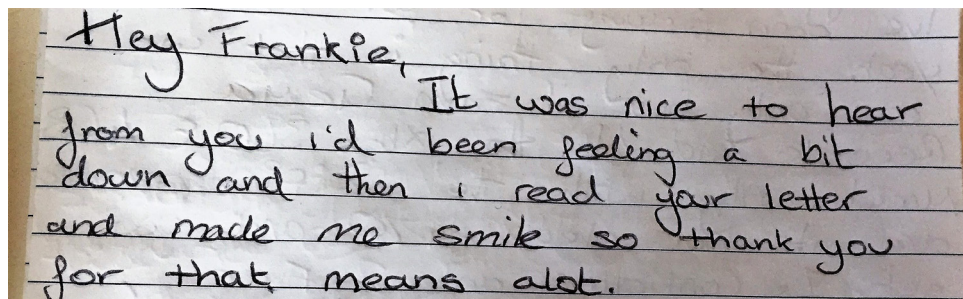 Hey Frankie,
It was nice to hear
from you i'd been feeling a bit
down and then i read your letter
and made me smile so thank you
for that, means alot.